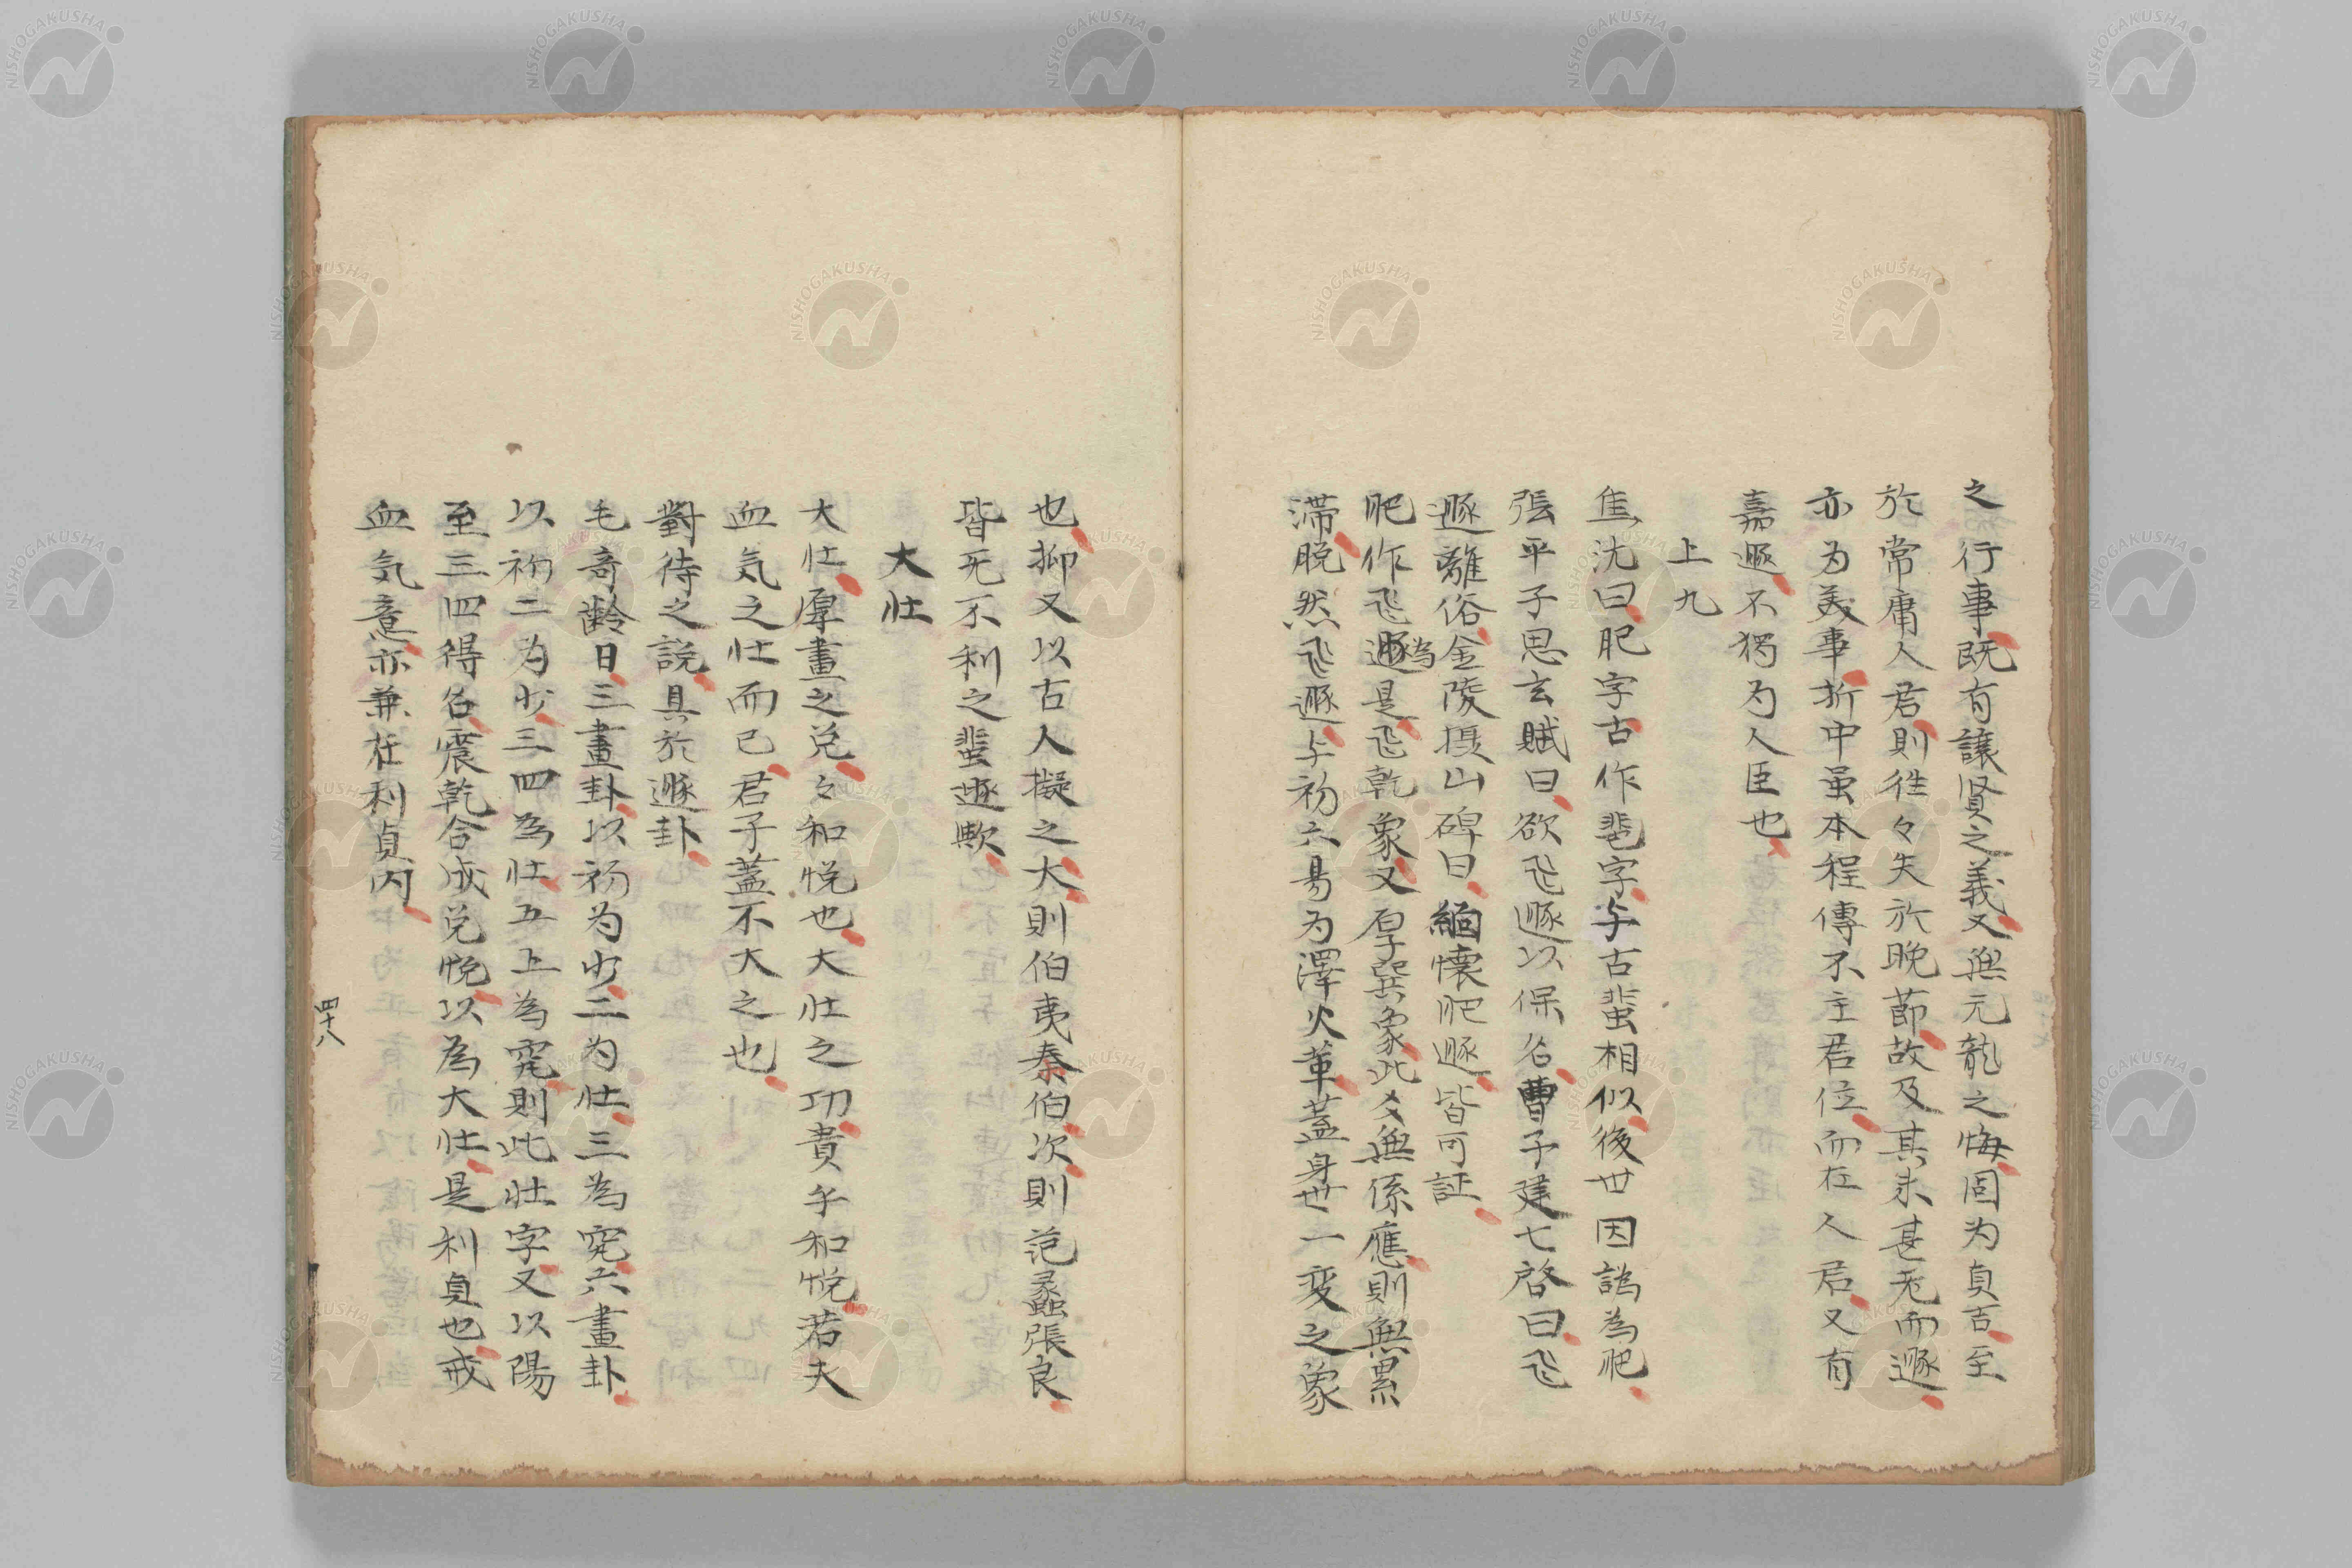 之行事既有讓賢之義又無元龍之悔固为貞吉至
於常庸人君則往々失於晚節故及其未甚老而遯
亦为美事折中虽本程傳不主君位而在人君又有
嘉遯不独为人臣也
上九
焦沈曰肥字古作𦐜字与古蜚相似後世因譌為肥
張平子思玄賦曰欲飞遯以保名曹子建七啓曰飞
遯離俗金陵摄山碑曰緬懷肥遯皆可証
肥作飞遯為是飞乾象又厚巽象此爻無係應則無累
滞脱然飞遯与初六易为澤火革蓋身世一变之象
也抑又以古人擬之大則伯夷泰伯次則范蠡張良
皆无不利之蜚遯歟
大壮
大壮厚畫之兑々和悦也大壮之功貴乎和悦若夫
血気之壮而已君子蓋不大之也
對待之説具於遯卦
毛竒齡曰三畫卦以初为少二为壮三為究六畫卦
以初二为少三四為壮五上為究則此壮字又以陽
至三四得名震乾合成兑悦以為大壮是利貞也戒
血気意亦兼在利貞内
四十八
NISHOGAKUSHA